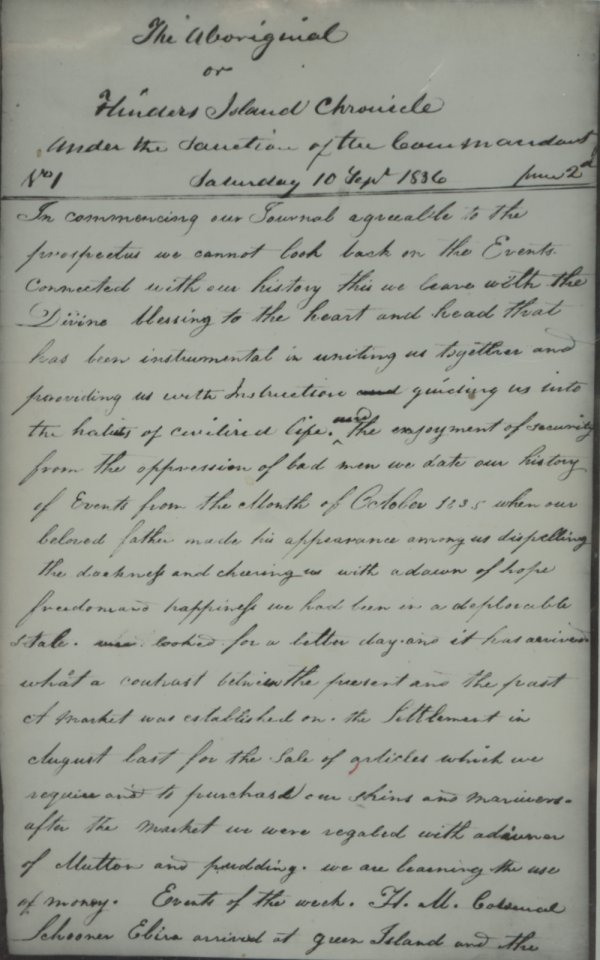 The Aboriginal
or
Flinders Island Chronicle
Under the Sanction of the Commandant
No 1 Saturday 10 Sept 1836 price 2d
In commencing our Journal agreeable to the
prospectus we cannot look back on the Events
Connected with our history this we leave with the
Divine blessing to the heart and head that
has been instrumental in uniting us together and
providing us with Instruction and guiding us into
the habits of civilized life. and The enjoyment of security
from the oppression of bad men we date our history
of Events from the Month of October 1835 when our
beloved father made his appearance among us dispelling
the darkness and cheering us with a dawn of hope
freedom and happiness we had been in a deplorable
State. we looked for a better day and it has arrived
what a contrast between the present and the past
A Market was established on the Settlement in
August last for the Sale of articles which we
require and to purchase our skins and
after the Market we were regaled with a dinner
of Mutton and pudding. we are learning the use
of money. Events of the week. H. M. Colonial
Schooner Eliza arrived at green Island and the